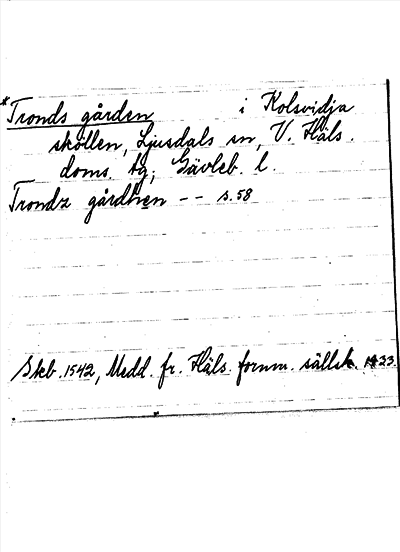 *Tronds gården i Kolsvidja
sköllen, Ljusdals sn, V. Häls.
doms. tg, Gävleb. l.
Trondz gårdhen -- s.58
Skb. 1542, Medd. fr. Häls. fornm. sällsk. 1933.